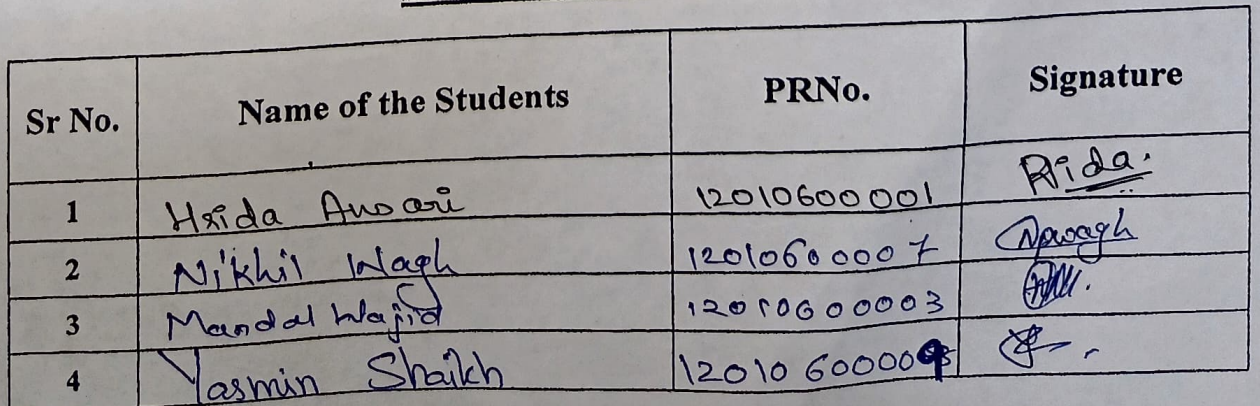 Sr No. Name of the Students PRNo. Signature
1 Hrida Ansari 12010600001 Rida.
2 Nikhil Wagh 12010600007 Npwagh
3 Mandal Wajid 12010600003
4 Yasmin Shaikh